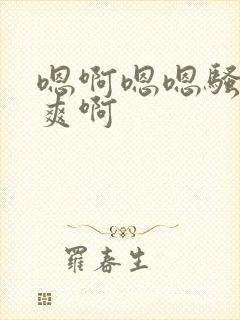 嗯啊嗯嗯骚
爽啊
羅春生